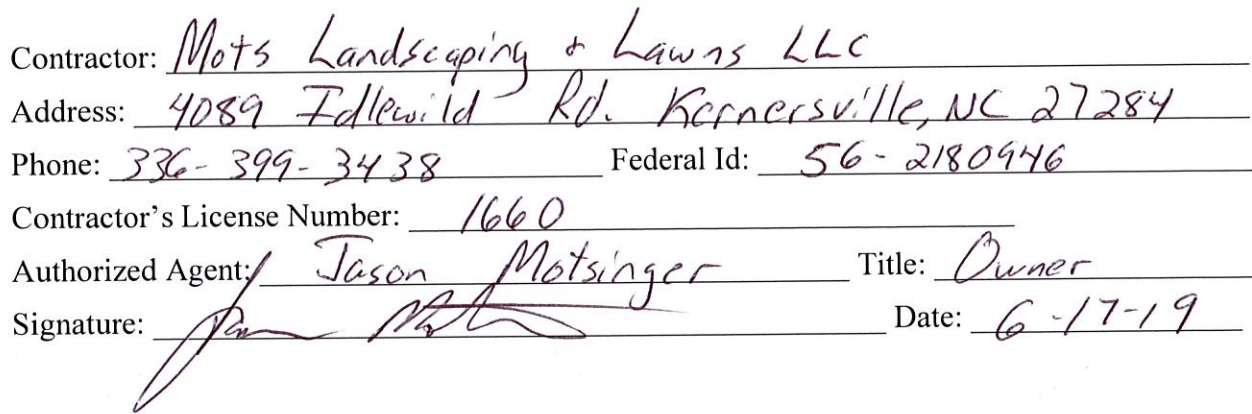 Contractor: Mots Landscaping & Lawns LLC
Address: 4089 Idlewild Rd. Kernersville, NC 27284
Phone: 336-399-3438 Federal Id: 56-2180946
Contractor's License Number: 1660
Authorized Agent: Jason Motsinger Title: Owner
Signature: Date: 6-17-19